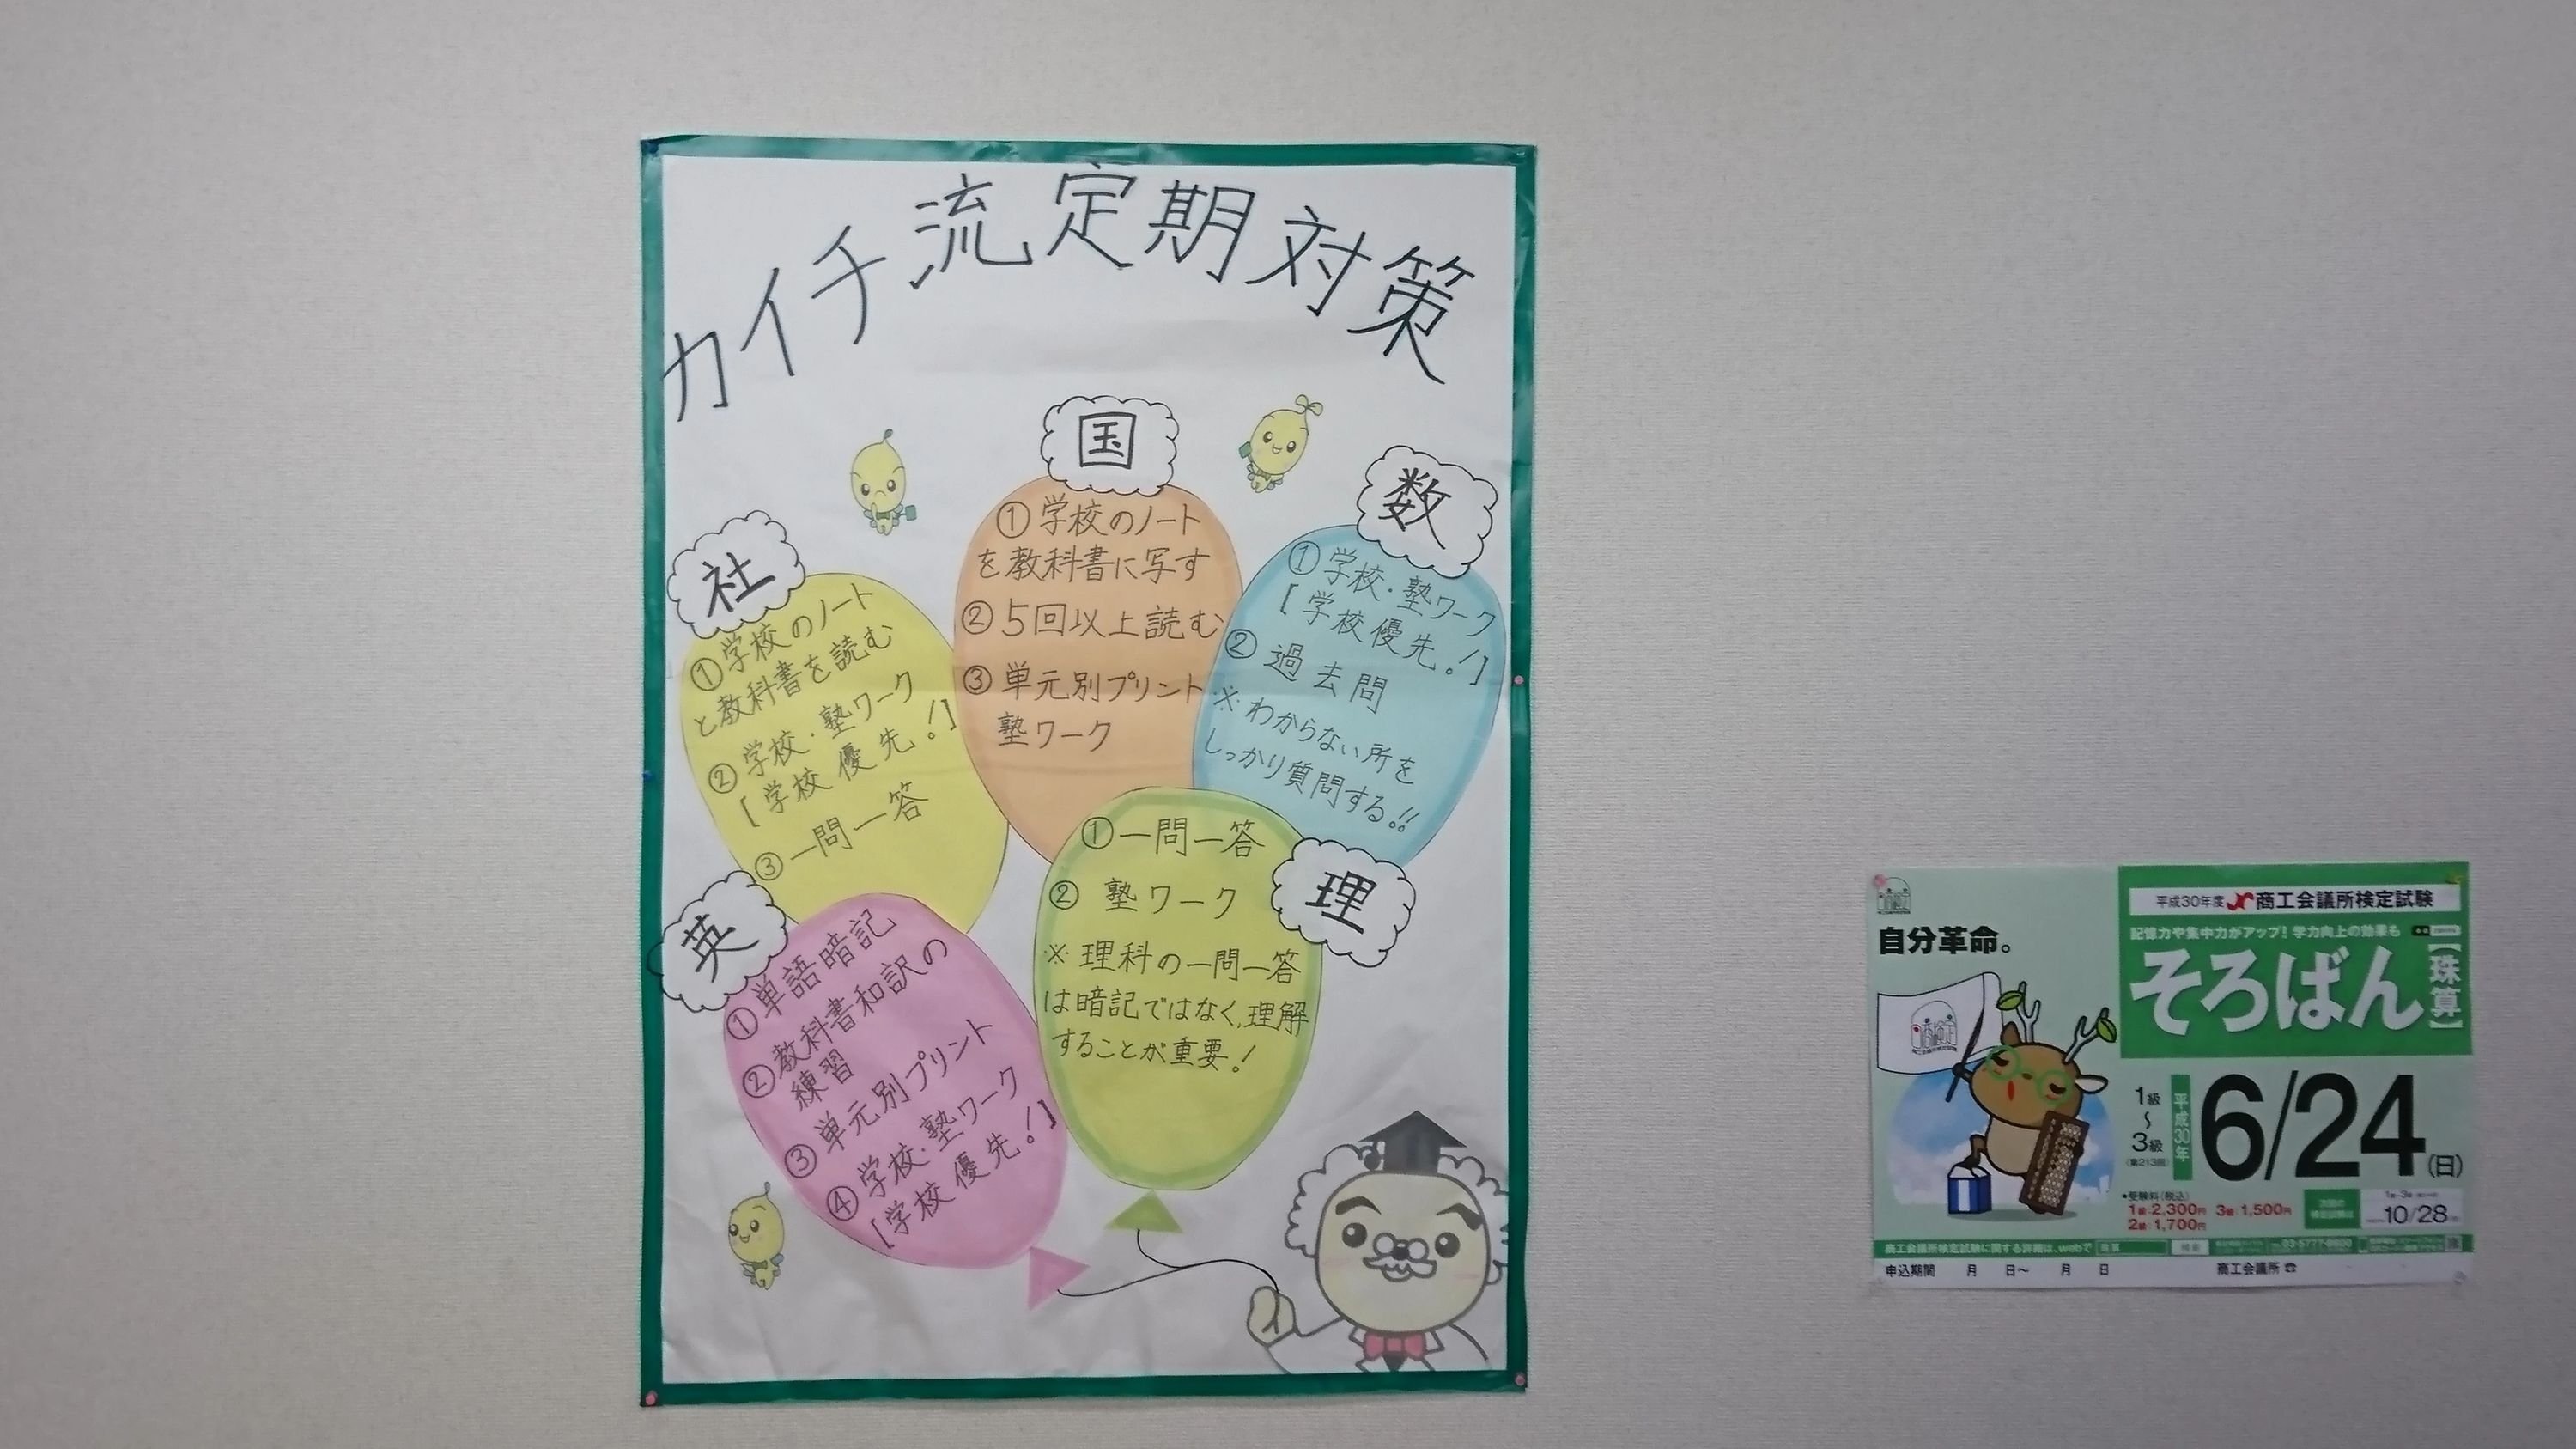 カイチ流定期対策
国
①学校のノート
を教科書に写す
②5回以上読む
③単元別プリント
塾ワーク
数
①学校・塾ワーク
[学校優先!]
②過去問
※わからない所を
しっかり質問する!!
社
①学校のノート
と教科書を読む
②学校・塾ワーク
[学校優先!]
③一問一答
英
①単語暗記
②教科書和訳の
練習
③単元別プリント
④学校・塾ワーク
[学校優先!]
理
①一問一答
②塾ワーク
※理科の一問一答
は暗記ではなく、理解
することが重要!
自分革命。
平成30年度 商工会議所検定試験
記憶力や集中力がアップ!学力向上の効果も
そろばん【珠算】
1級〜3級
(第213回)
平成30年
6/24(日)
•受験料(税込)
1級:2,300円 3級:1,500円
2級:1,700円
10/28
商工会議所検定試験に関する詳細は、webで 検索
申込期間 月 日〜 月 日 商工会議所☎